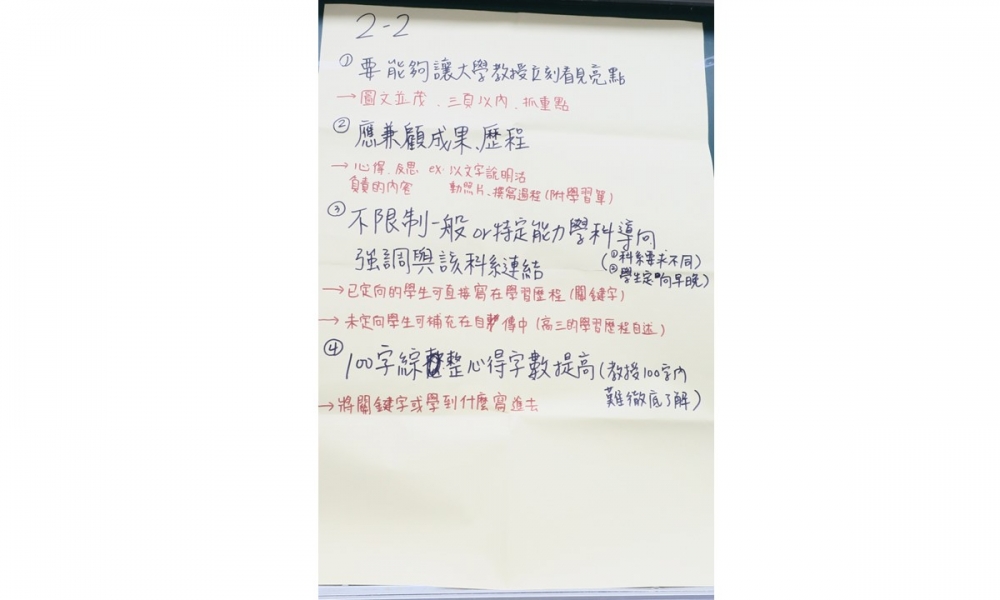 2-2
① 要能夠讓大學教授立刻看見亮點
→圖文並茂、三頁以內、抓重點
② 應兼顧成果、歷程
→心得、反思 ex. 以文字說明活
負責的內容 動照片、撰寫過程(附學習單)
③ 不限制一般or特定能力學科導向
強調與該科系連結
(①科系要求不同)
②學生定向早晚)
→已定向的學生可直接寫在學習歷程(關鍵字)
→未定向學生可補充在自傳中(高三的學習歷程自述)
④ 100字綜整心得字數提高(教授100字內
難徹底了解)
→將關鍵字或學到什麼寫進去